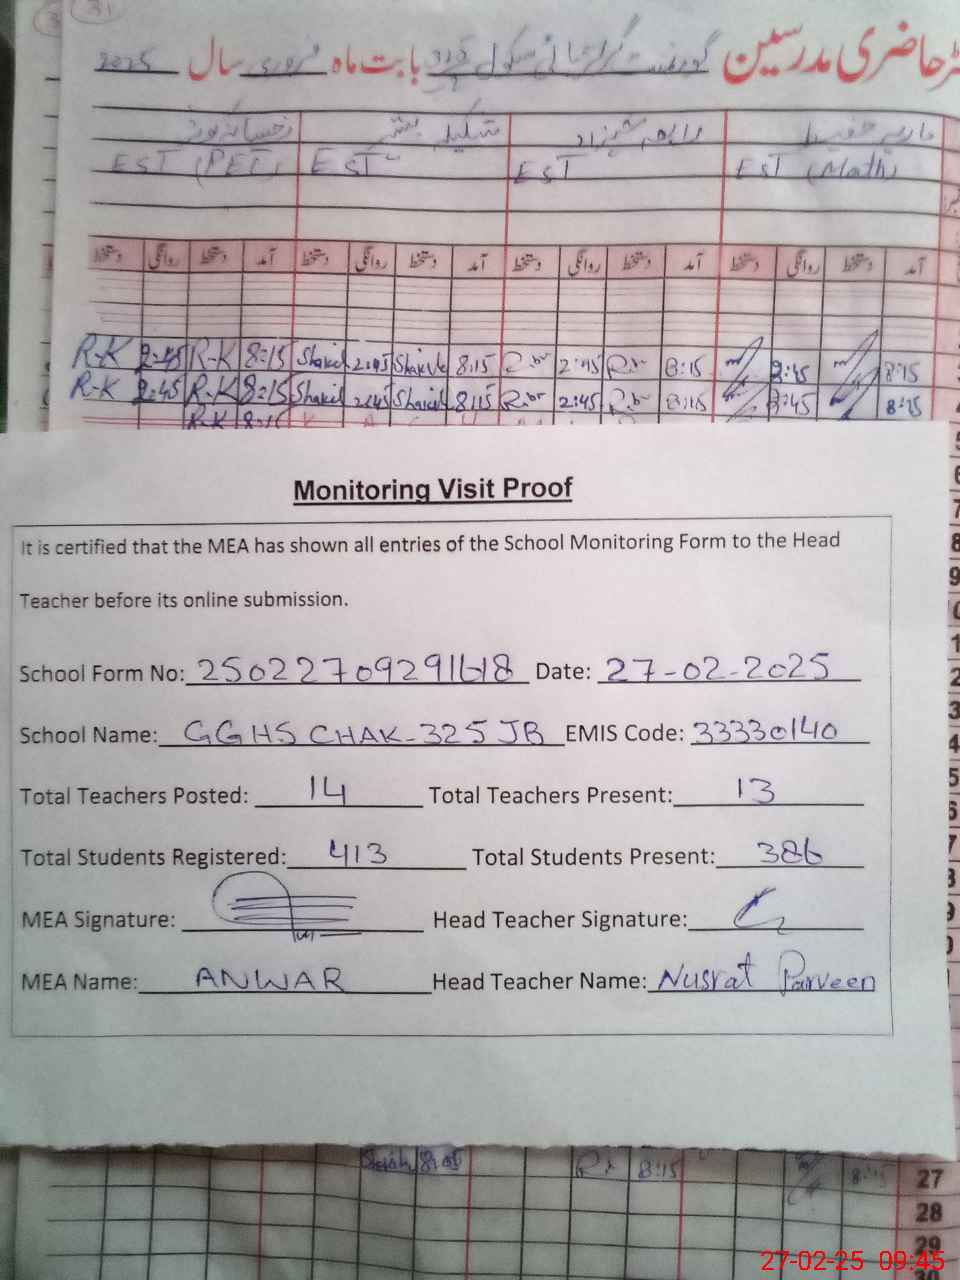 رجسٹر حاضری مدرسین گورنمنٹ گرلز ہائی سکول 325 بابت ماہ فروری سال 2025
EST (PET) EST EST EST (Math)
دستخط روانگی دستخط آمد دستخط روانگی دستخط آمد دستخط روانگی دستخط آمد دستخط روانگی دستخط آمد
R-K 2:45 R-K 8:15 Shakil 2:45 Shakil 8:15 2:45 8:15 2:45 8:15
R-K 2:45 R-K 8:15 Shakil 2:45 Shakil 8:15 2:45 8:15 2:45 8:15
Monitoring Visit Proof
It is certified that the MEA has shown all entries of the School Monitoring Form to the Head
Teacher before its online submission.
School Form No: 25022709291618 Date: 27-02-2025
School Name: GGHS CHAK-325 JB EMIS Code: 33330140
Total Teachers Posted: 14 Total Teachers Present: 13
Total Students Registered: 413 Total Students Present: 386
MEA Signature: Head Teacher Signature:
MEA Name: ANWAR Head Teacher Name: Nusrat Parveen
8:15 8:15 27
28
29
27-02-25 09:45